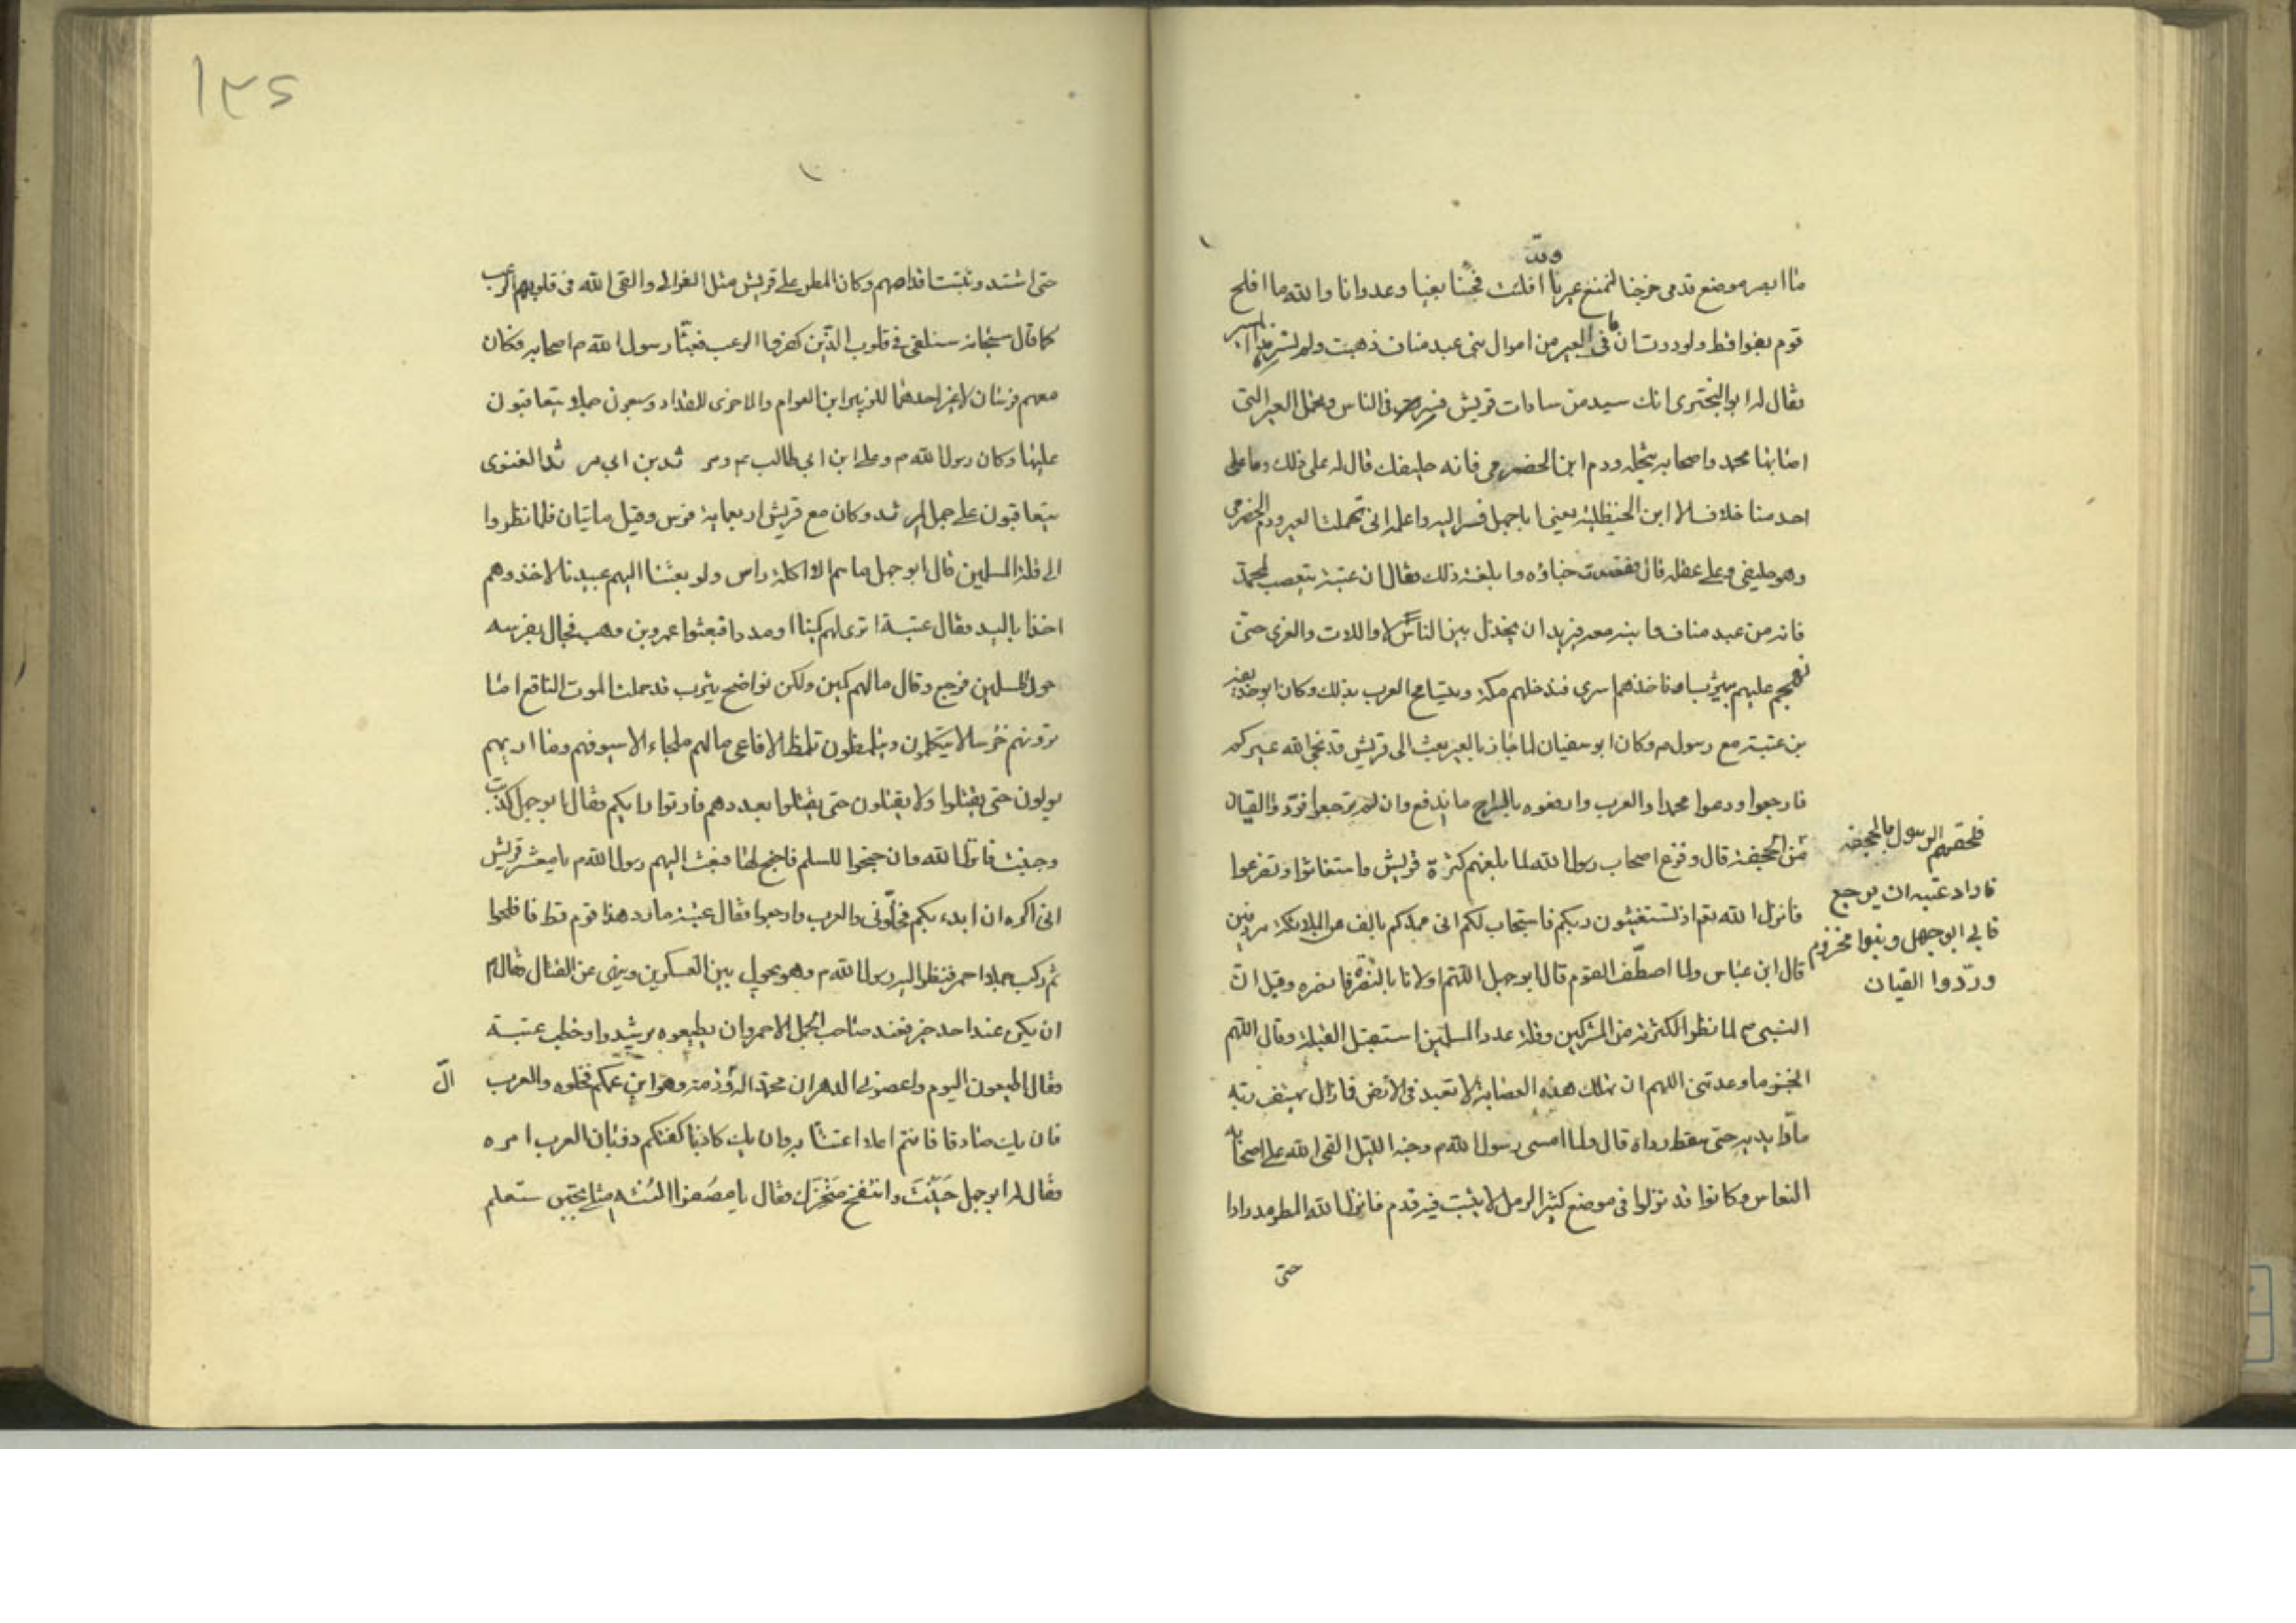 وقد
ما ابصر موضع قدمى خرجنا لنمنع عيرنا افلتت فجئنا بغيا وعدوانا والله ما افلح
قوم بغوا قط ولوددت ان ما فى العير من اموال بنى عبد مناف ذهبت ولم نسر هذا المسير
فقال له ابو البخترى انك سيد من سادات قريش فسر فى الناس وتحمل العير التى
اصابها محمد واصحابه بنخلة ودم ابن الحضرمى فانه حليفك قال له على ذلك وما على
احد منا خلاف الا ابن الحنظلية يعنى ابا جهل فسر اليه واعلمه انى تحملت العير ودم الحضرمى
وهو حليفى وعلى عقله قال فقصدت خباؤه وابلغته ذلك فقال ان عتبة يتعصب لمحمد
فانه من عبد مناف وابنه معه فيريد ان يخذل بين الناس لا واللات والعزى حتى
نهجم عليهم بيثرب او ناخذهم اسرى فندخلهم مكة وتتسامع العرب بذلك وكان ابو حذيفة
بن عتبة مع رسول م وكان ابو سفيان لما جاز بالعير بعث الى قريش قد نجى الله عيركم
فارجعوا ودعوا محمدا والعرب وادفعوه بالراح ما اندفع وان لم ترجعوا فردوا القيان
فلحقهم الرسول بالجحفة
فاراد عتبه ان يرجع
فابى ابو جهل وبنوا مخزوم
وردّوا القيان
من الجحفة قال وفزع اصحاب رسول الله لما بلغهم كثرة قريش واستغاثوا وتضرعوا
فانزل الله تعم اذ تستغيثون ربكم فاستجاب لكم انى ممدكم بالف من الملائكة مردفين
قال ابن عباس ولما اصطّف القوم قال ابو جهل اللهم اولانا بالنصرة فانصره وقيل انّ
النبى ص لما نظر الى كثرة من المشركين وقلة عدد المسلمين استقبل القبلة وقال اللهم
انجز ما وعدتنى اللهم ان تهلك هذه العصابة لا تعبد فى الارض فما زال يهتف ربه
مادّا يديه حتى سقط رداه قال ولما امسى رسول الله م وجنه الليل القى الله على اصحابه
النعاس وكانوا قد نزلوا فى موضع كثير الرمل لا يثبت فيه قدم فانزل الله المطر مدرارا
حتى
١٣٤
حتى اشتد وثبتت اقدامهم وكان المطر على قريش مثل العزالى والقى الله فى قلوبهم الرعب
كما قال سبحانه سنلقى فى قلوب الذين كفروا الرعب فعبّا رسول الله م اصحابه وكان
معهم فرسان لا غير احدهما للزبير ابن العوام والاخرى للمقداد وسبعون جملا يتعاقبون
عليها وكان رسول الله م وعلى ابن ابى طالب ع ومر ثد بن ابى مر ثد الغنوى
يتعاقبون على جمل لمرثد وكان مع قريش اربعماية فرس وقيل ماتيان فلما نظروا
الى قلة المسلمين قال ابو جهل ما هم الا اكلة راس ولو بعثنا اليهم عبيدنا لاخذوهم
اخذا باليد فقال عتبة اترى لهم كمينا او مددا فبعثوا عمرو بن وهب فجال بفرسه
حول المسلمين فرجع وقال ما لهم كمين ولكن نواضح يثرب قد حملت الموت الناقع اما
ترونهم خرسا لا يتكلمون ويتلمظون تلمظ الافاعى ما لهم ملجاء الا سيوفهم وما اريهم
يولون حتى يقتلوا ولا يقتلون حتى يقتلوا بعددهم فارتوا رايكم فقال ابو جهل كذبت
وجبنت فانزل الله وان جنحوا للسلم فاجنح لها فبعث اليهم رسول الله م يا معشر قريش
انى اكره ان ابدء بكم فخلّونى والعرب وارجعوا فقال عتبة ما رد هذا قوم قط فافلحوا
ثم ركب جملا احمر فنظر اليه رسول الله م وهو يجول بين العسكرين وينهى عن القتال فقال م
ان يكن عند احد خير فعند صاحب الجمل الاحمر وان يطيعوه يرشدوا وخطب عتبة
فقال اطيعون اليوم واعصونى الدهر ان محمدا له ال وذمة وهو ابن عمكم فخلوه والعرب
الّ
فان يك صادقا فانتم اعلا عينا به وان يك كاذبا كفتكم ذؤبان العرب امره
فقال له ابو جهل جَبُنْتَ وانتفخ مَنْخِرَك فقال يا مصفر استه مثلى يجبن ستعلم